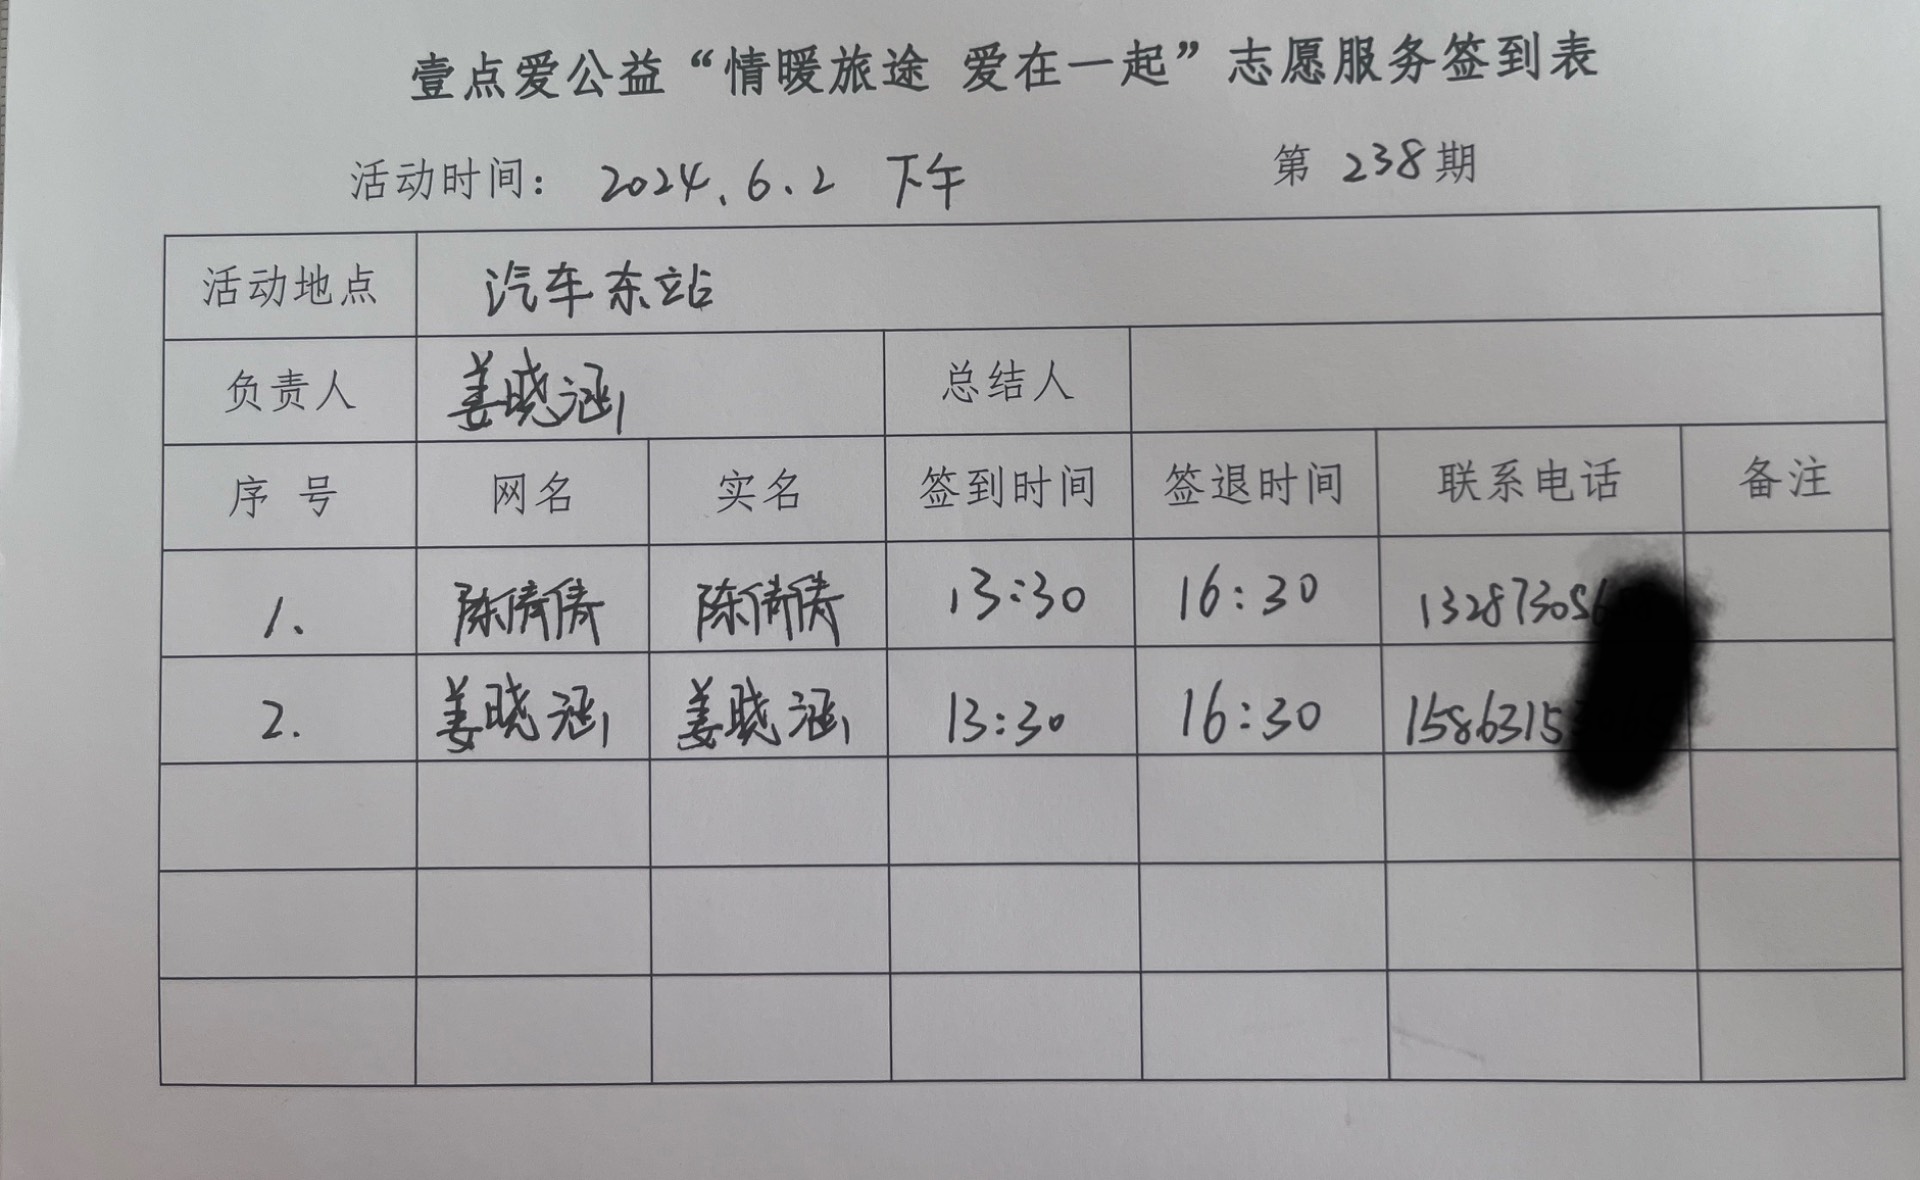 壹点爱公益“情暖旅途 爱在一起”志愿服务签到表
活动时间： 2024.6.2 下午 第 238 期
活动地点 汽车东站
负责人 姜晓涵 总结人
序 号 网名 实名 签到时间 签退时间 联系电话 备注
1. 陈倩倩 陈倩倩 13:30 16:30 132873056
2. 姜晓涵 姜晓涵 13:30 16:30 1586315